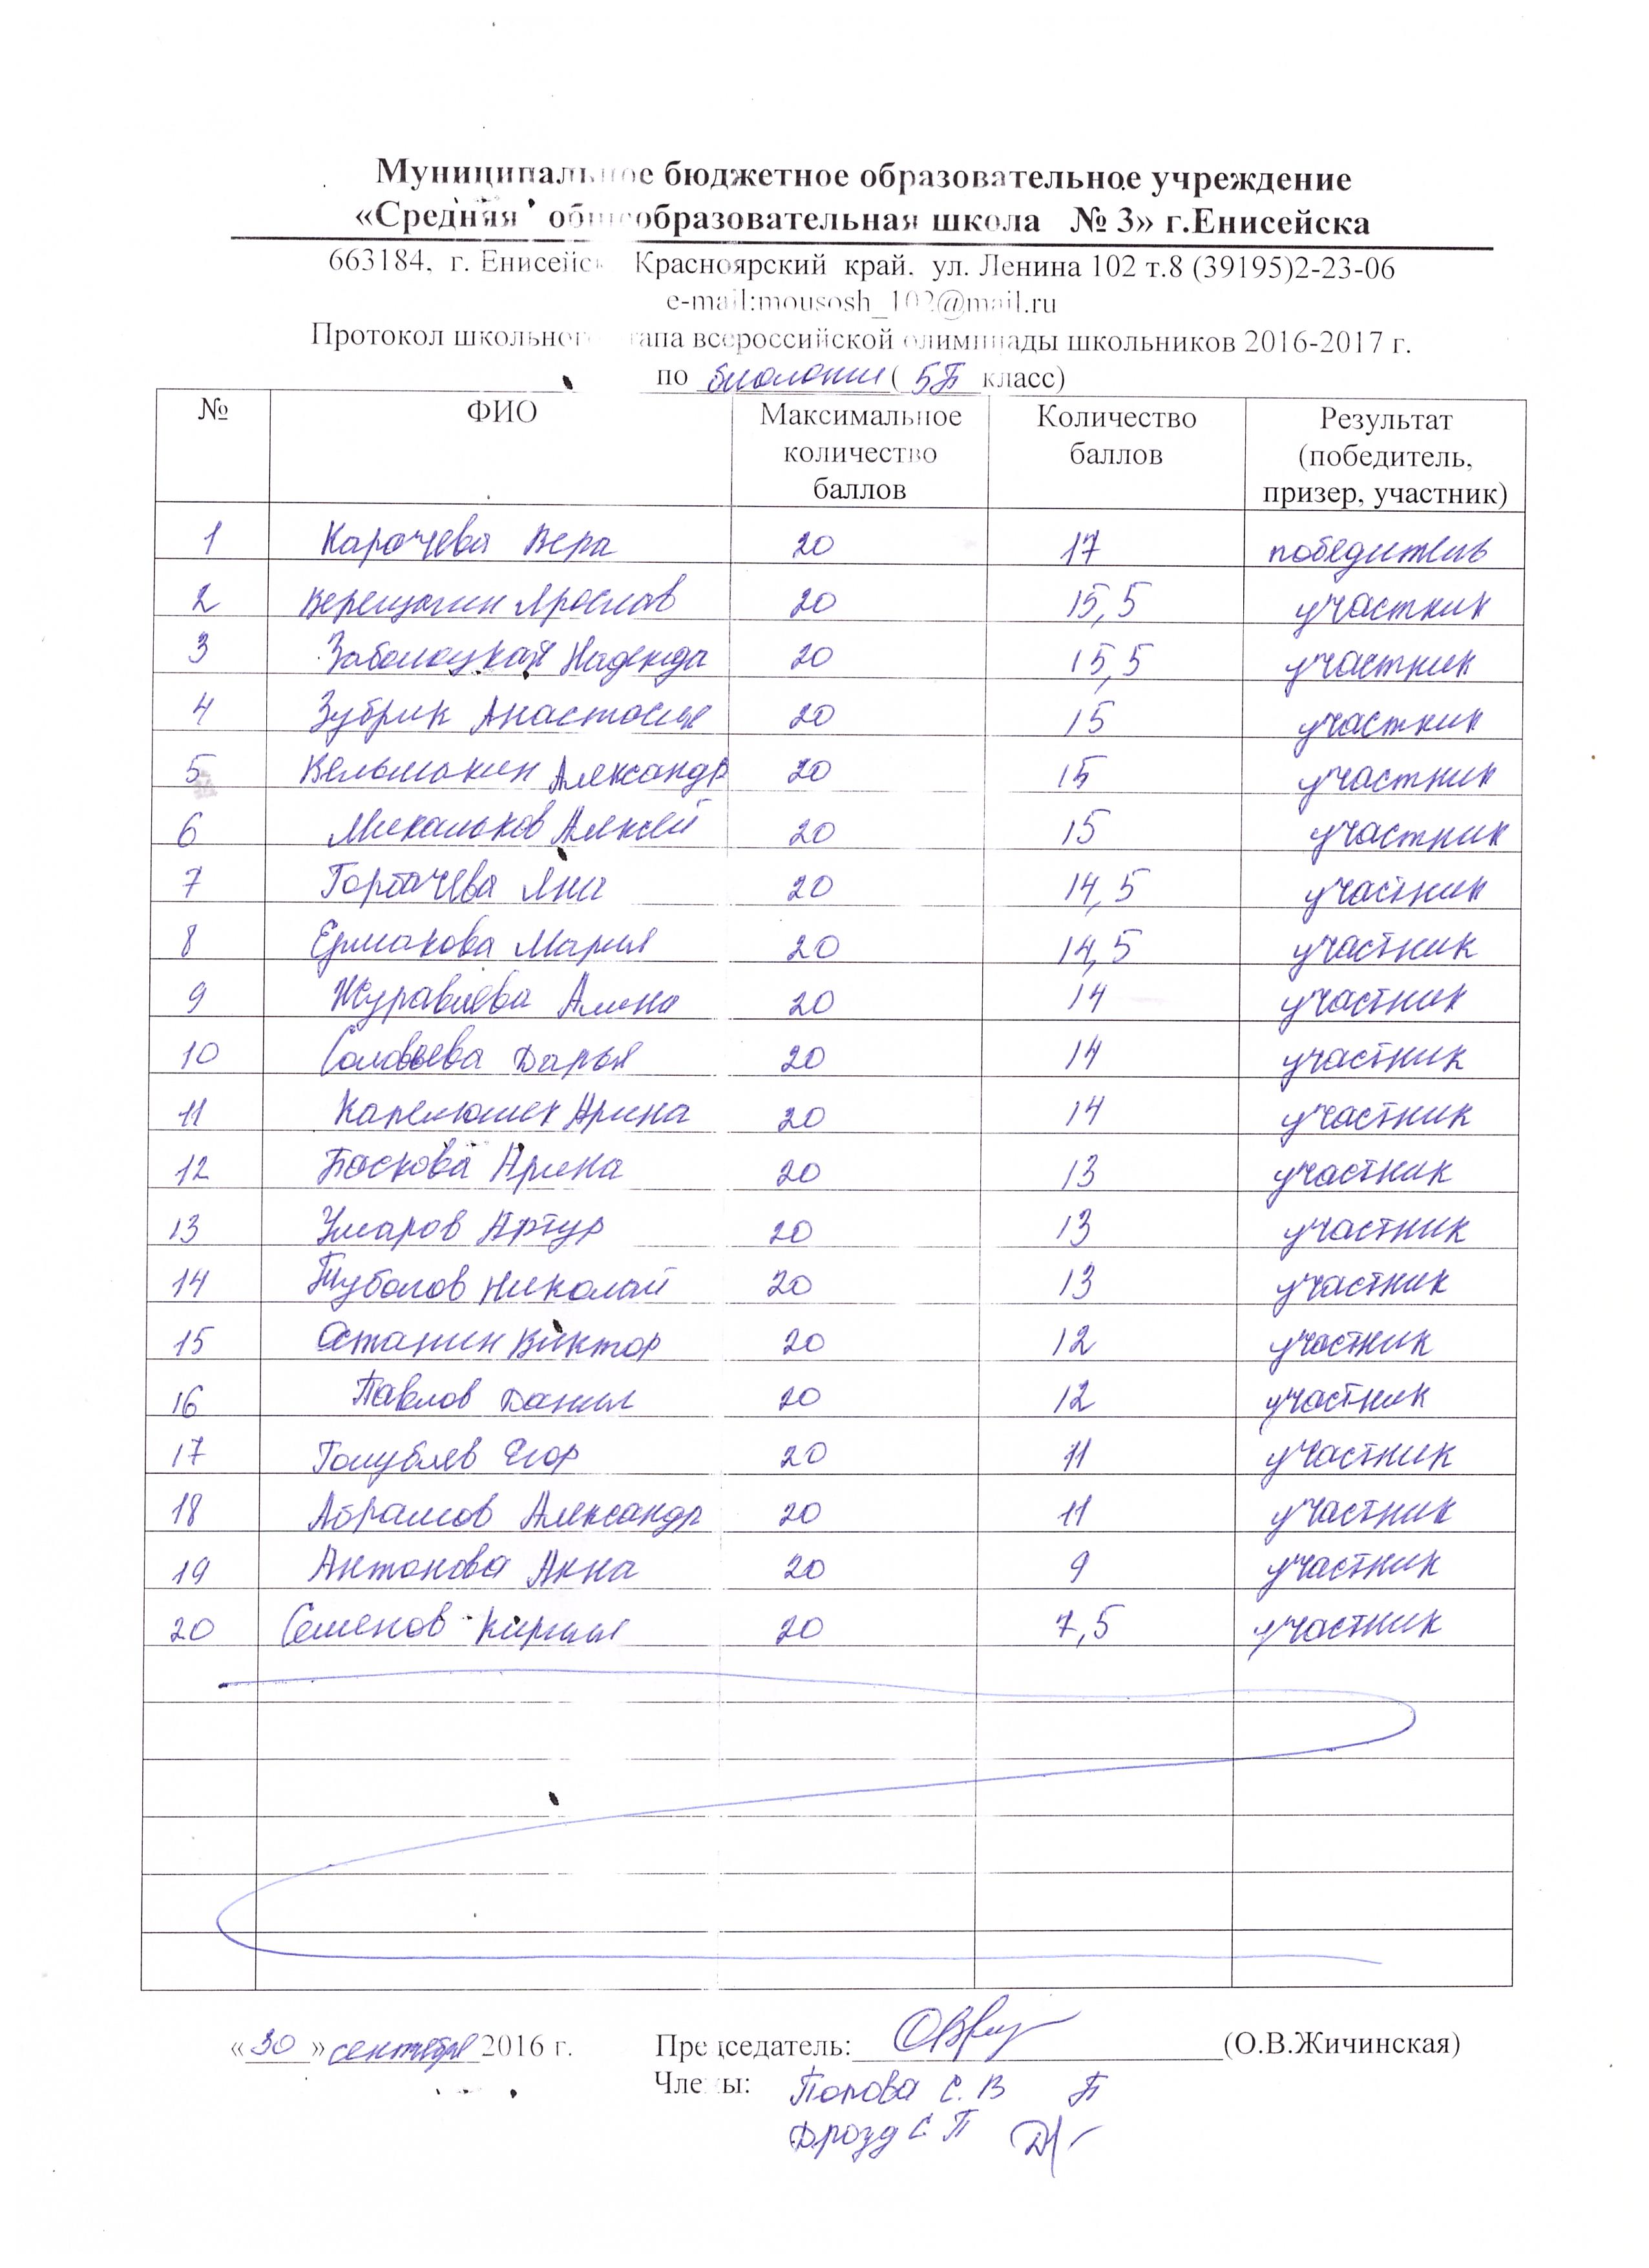 Муниципальное бюджетное образовательное учреждение
«Средняя общеобразовательная школа № 3» г.Енисейска
663184, г. Енисейск Красноярский край. ул. Ленина 102 т.8 (39195)2-23-06
e-mail:mousosh_102@mail.ru
Протокол школьного этапа всероссийской олимпиады школьников 2016-2017 г.
по биологии ( 5Б класс)
№ ФИО Максимальное количество баллов Количество баллов Результат (победитель, призер, участник)
1 Карачева Вера 20 17 победитель
2 Верещагин Ярослав 20 15,5 участник
3 Заболоцкая Надежда 20 15,5 участник
4 Зубрик Анастасия 20 15 участник
5 Вельмакин Александр 20 15 участник
6 Михальков Алексей 20 15 участник
7 Горбачева Яна 20 14,5 участник
8 Ермакова Мария 20 14,5 участник
9 Журавлева Алина 20 14 участник
10 Соловьева Дарья 20 14 участник
11 Карелюшек Арина 20 14 участник
12 Баскова Арина 20 13 участник
13 Умаров Артур 20 13 участник
14 Николай 20 13 участник
15 Останин Виктор 20 12 участник
16 Павлов Данил 20 12 участник
17 Голублев Егор 20 11 участник
18 Абрамов Александр 20 11 участник
19 Антонова Анна 20 9 участник
20 Семенов Кирилл 20 7,5 участник
«30» сентября 2016 г. Председатель: (О.В.Жичинская)
Члены: Попова С. В
Дрозд С П